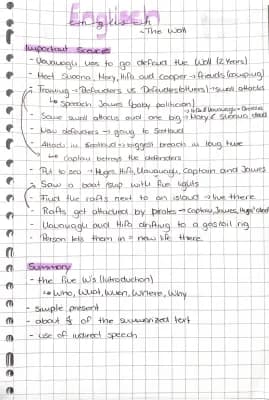 Englisch
english
- The Wall
Important Scenes
- Kavanagh has to go defend the Wall (2 Years)
- Meet Sworna, Mary, Hifa and Cooper → friends (Grouping)
- Training → Defenders vs Defenders (Others) → small attacks
↳ Speech James (baby politician)
- Some small attacks and one big → Mary &
- New defenders → going to Scotland
- Attack in Scotland → biggest breach in long time
↳ Captain betrays the defenders
- Put to sea → Hughes, Hifa, Kavanagh, Captain and James
- Saw a boat ship with five lights
- Find the rafts next to an island → live there
- Rafts get attacked by pirates → Captain, James, Hughes died
- Kavanagh and Hifa climbing to a gas/oil rig
- Person lets them in = new life there
Summary
- the five W's (Introduction)
↳ Who, What, When, Where, Why
- simple present
- about of the summarized text
- use of indirect speech